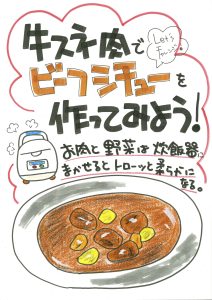 牛スネ肉で
Let's
チャレンジ!
ビーフシチューを
作ってみよう!
お肉と野菜は炊飯器に
まかせるとトローッと柔らかに
なる。